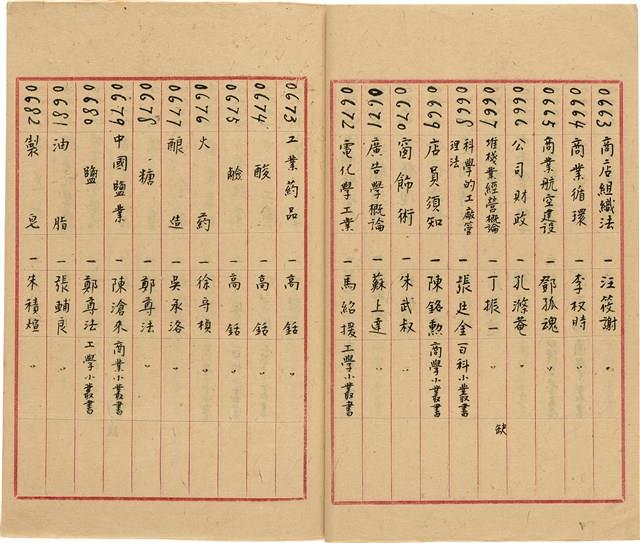 0663 商店組織法 一 汪筱謝
0664 商業循環 一 李权時 〃
0665 商業航空建设 一 鄧孤魂 〃
0666 公司财政 一 孔滌菴 〃
0667 堆棧業經营概論 一 丁振一 〃 缺
0668 科學的工廠管理法 一 張廷金 百科小叢書
0669 店員须知 一 陳銘勲 商學小叢書
0670 窗飾術 一 朱武叔 〃
0671 廣告學概論 一 蘇上達 〃
0672 電化學工業 一 馬紹援 工學小叢書
0673 工業药品 一 高銛 〃
0674 酸 一 高銛 〃
0675 鹼 一 高銛 〃
0676 火药 一 徐守楨 〃
0677 酿造 一 吴承洛 〃
0678 糖 一 鄭尊法 〃
0679 中國鹽業 一 陳滄来 商業小叢書
0680 鹽 一 鄭尊法 工學小叢書
0681 油脂 一 張輔良 〃
0682 製皂 一 朱積煊 〃